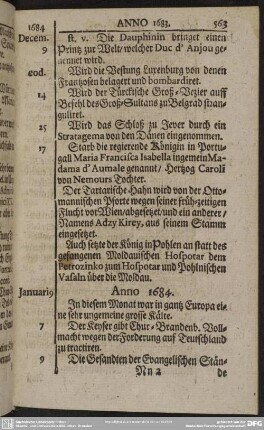 ANNO 1683. 563
1684
Decem. st. v. Die Dauphinin bringet einen
9 Printz zur Welt/ welcher Duc d' Anjou ge-
nennet wird.
eod. Wird die Vestung Luxenburg von denen
Frantzosen belagert und bombardiret.
14 Wird der Türckische Groß-Vezier auff
Befehl des Groß-Sultans zu Belgrad stran-
guliret.
25 Wird das Schloß zu Jever durch ein
Stratagema von den Dänen eingenommen.
17 Starb die regierende Königin in Portu-
gall Maria Francisca Isabella ingemein Ma-
dama d'Aumale genannt/ Hertzog Caroli
von Nemours Tochter.
Der Tartarische Hahn wird von der Otto-
mannischen Pforte wegen seiner früh-zeitigen
Flucht vor Wien/ abgesetzet/ und ein anderer/
Namens Adzy Kirey, aus seinem Stamm
eingesetzet.
Auch setzte der König in Pohlen an statt des
gefangenen Moldauischen Hospotar dem
Petrozinko zum Hospotar und Pohlnischen
Vasaln über die Moldau.
Januari9 Anno 1684.
In diesem Monat war in gantz Europa ei-
ne sehr ungemeine grosse Kälte.
7 Der Keyser gibt Chur-Brandenb. Voll-
macht wegen der Forderung auff Teutschland
zu tractiren.
9 Die Gesandten der Evangelischen Stän-
Nn 2 de